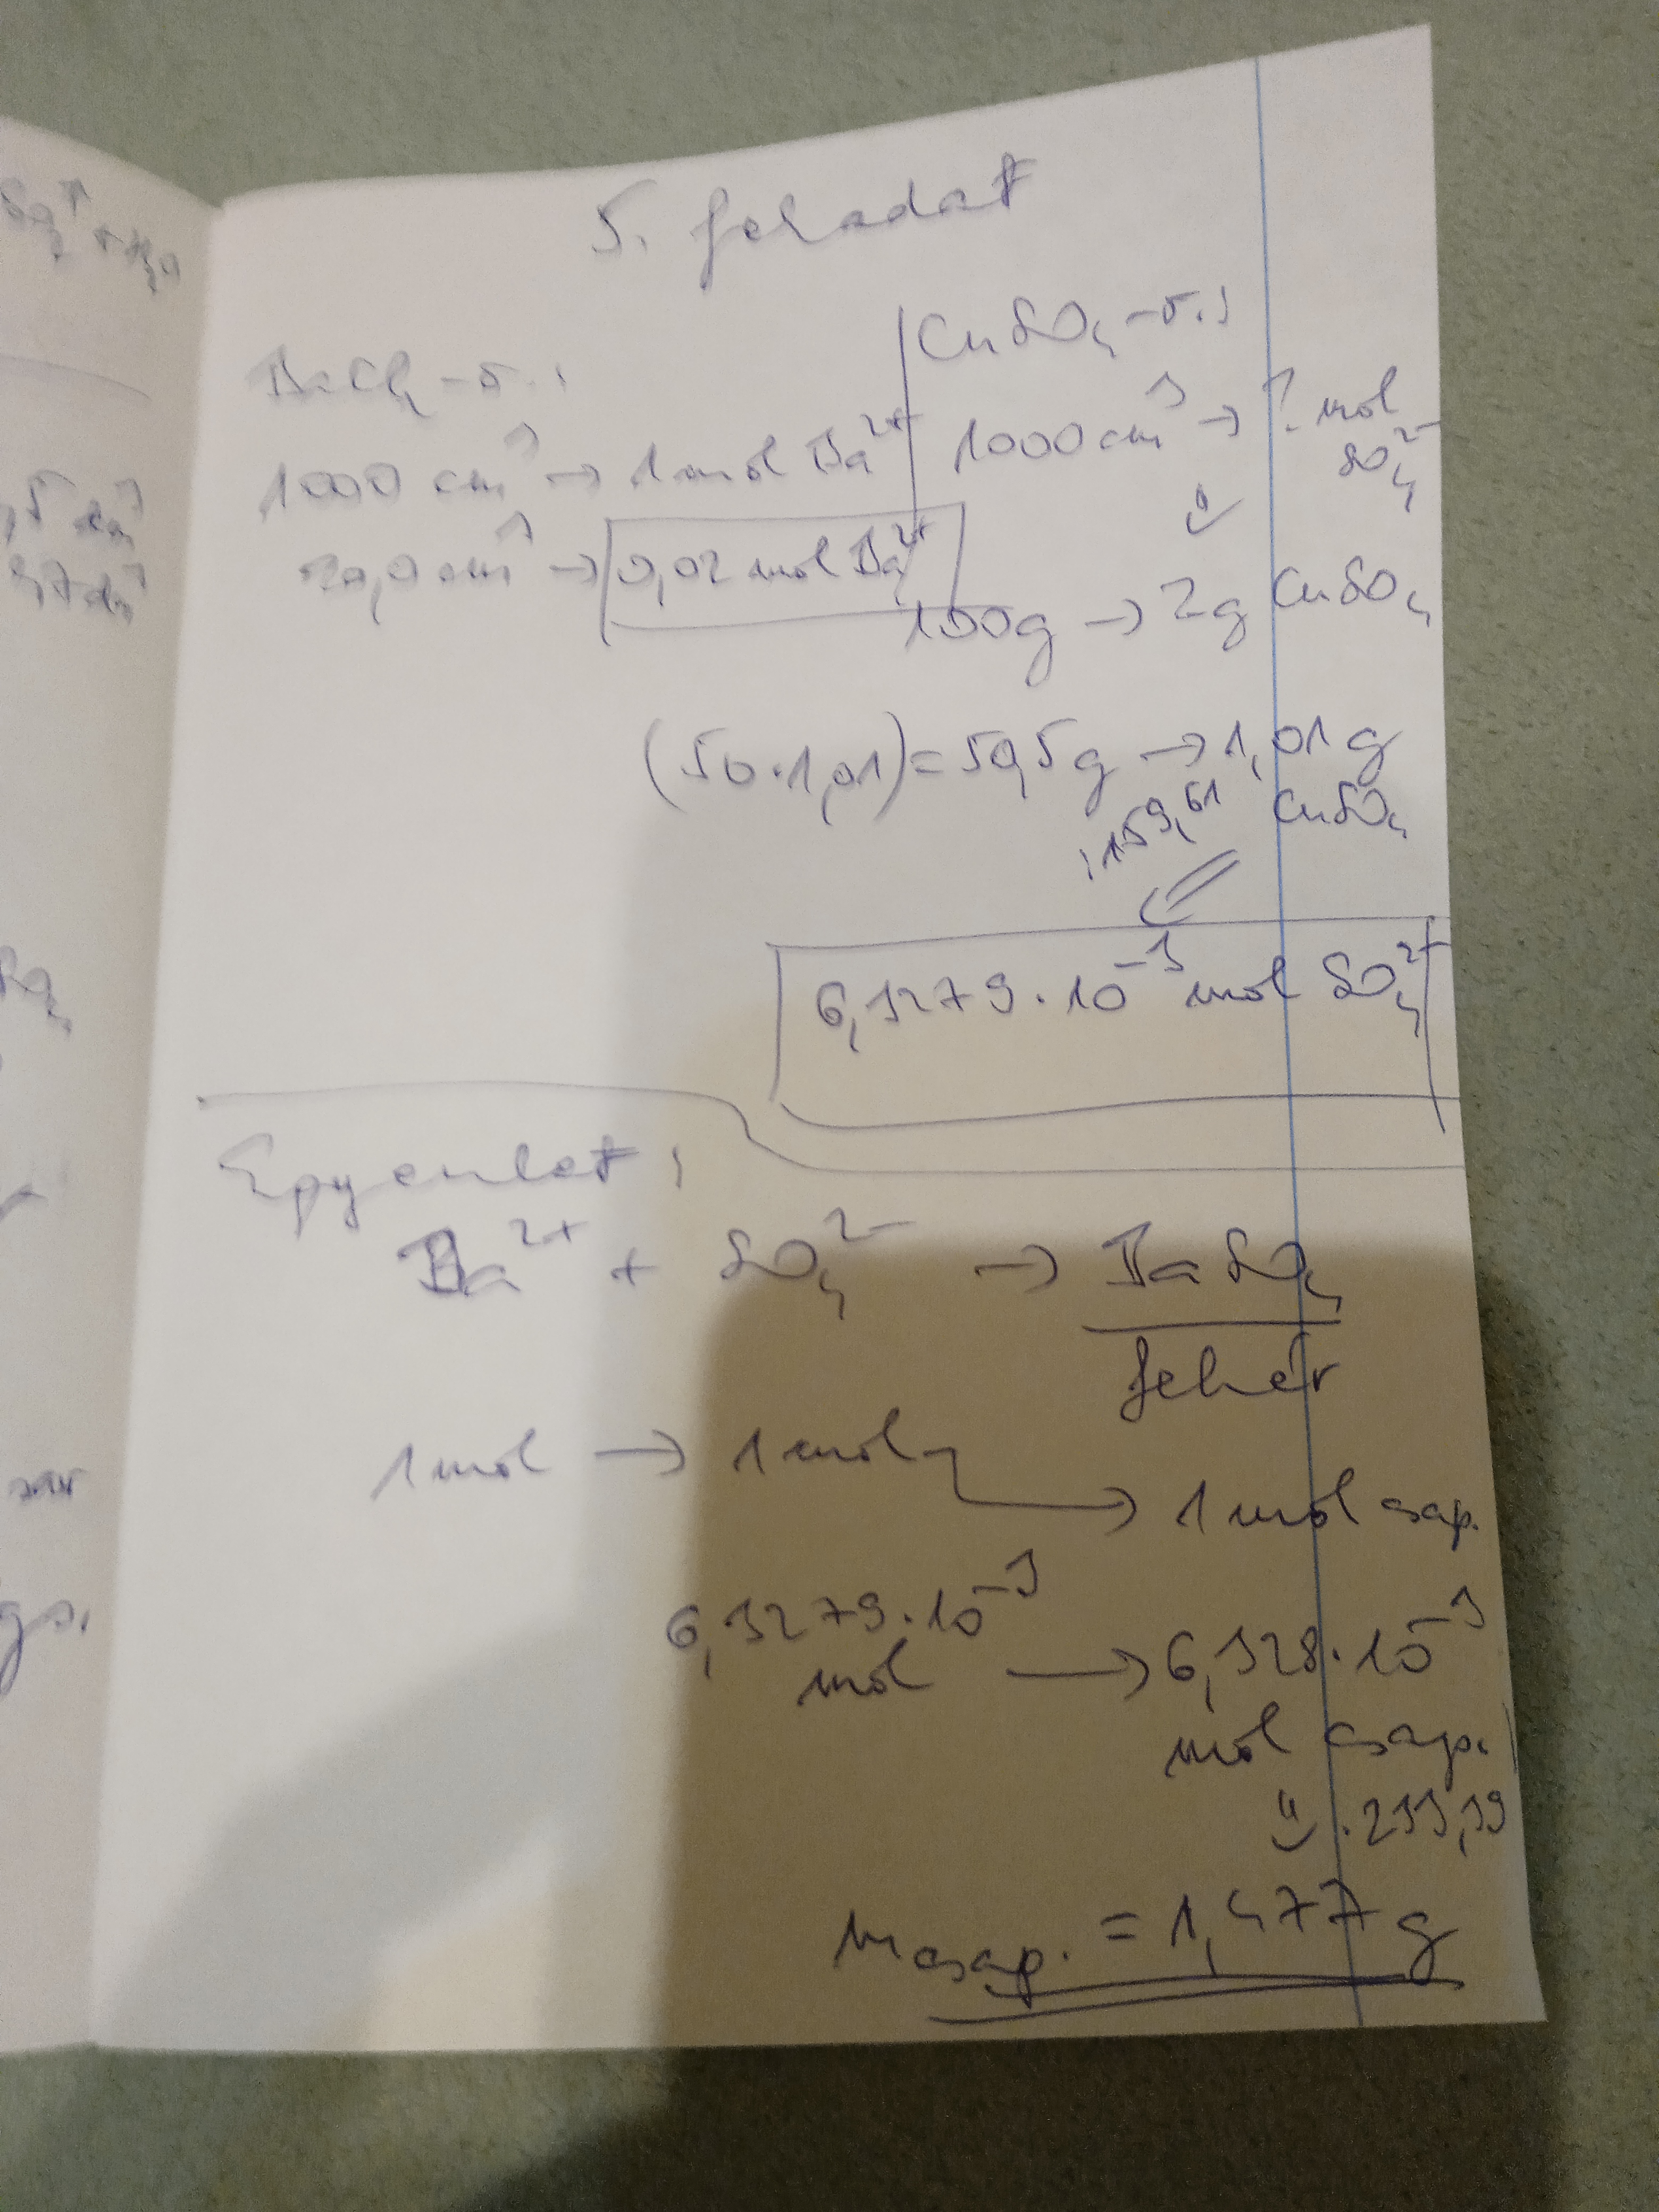 5. feladat
BaCl2-o.:
1000 cm³ → 1 mol Ba²⁺
20,0 cm³ → 0,02 mol Ba²⁺
CuSO₄-o.:
1000 cm³ → ? mol SO₄²⁻
⇓
100g → 2g CuSO₄
(50·1,01) = 50,5g → 1,01 g CuSO₄
:159,61
6,3279·10⁻³ mol SO₄²⁻
Egyenlet:
Ba²⁺ + SO₄²⁻ → BaSO₄
fehér
1 mol → 1 mol → 1 mol csap.
6,3279·10⁻³ mol → 6,328·10⁻³ mol csap.
⇓ ·233,39
m csap. = 1,477 g